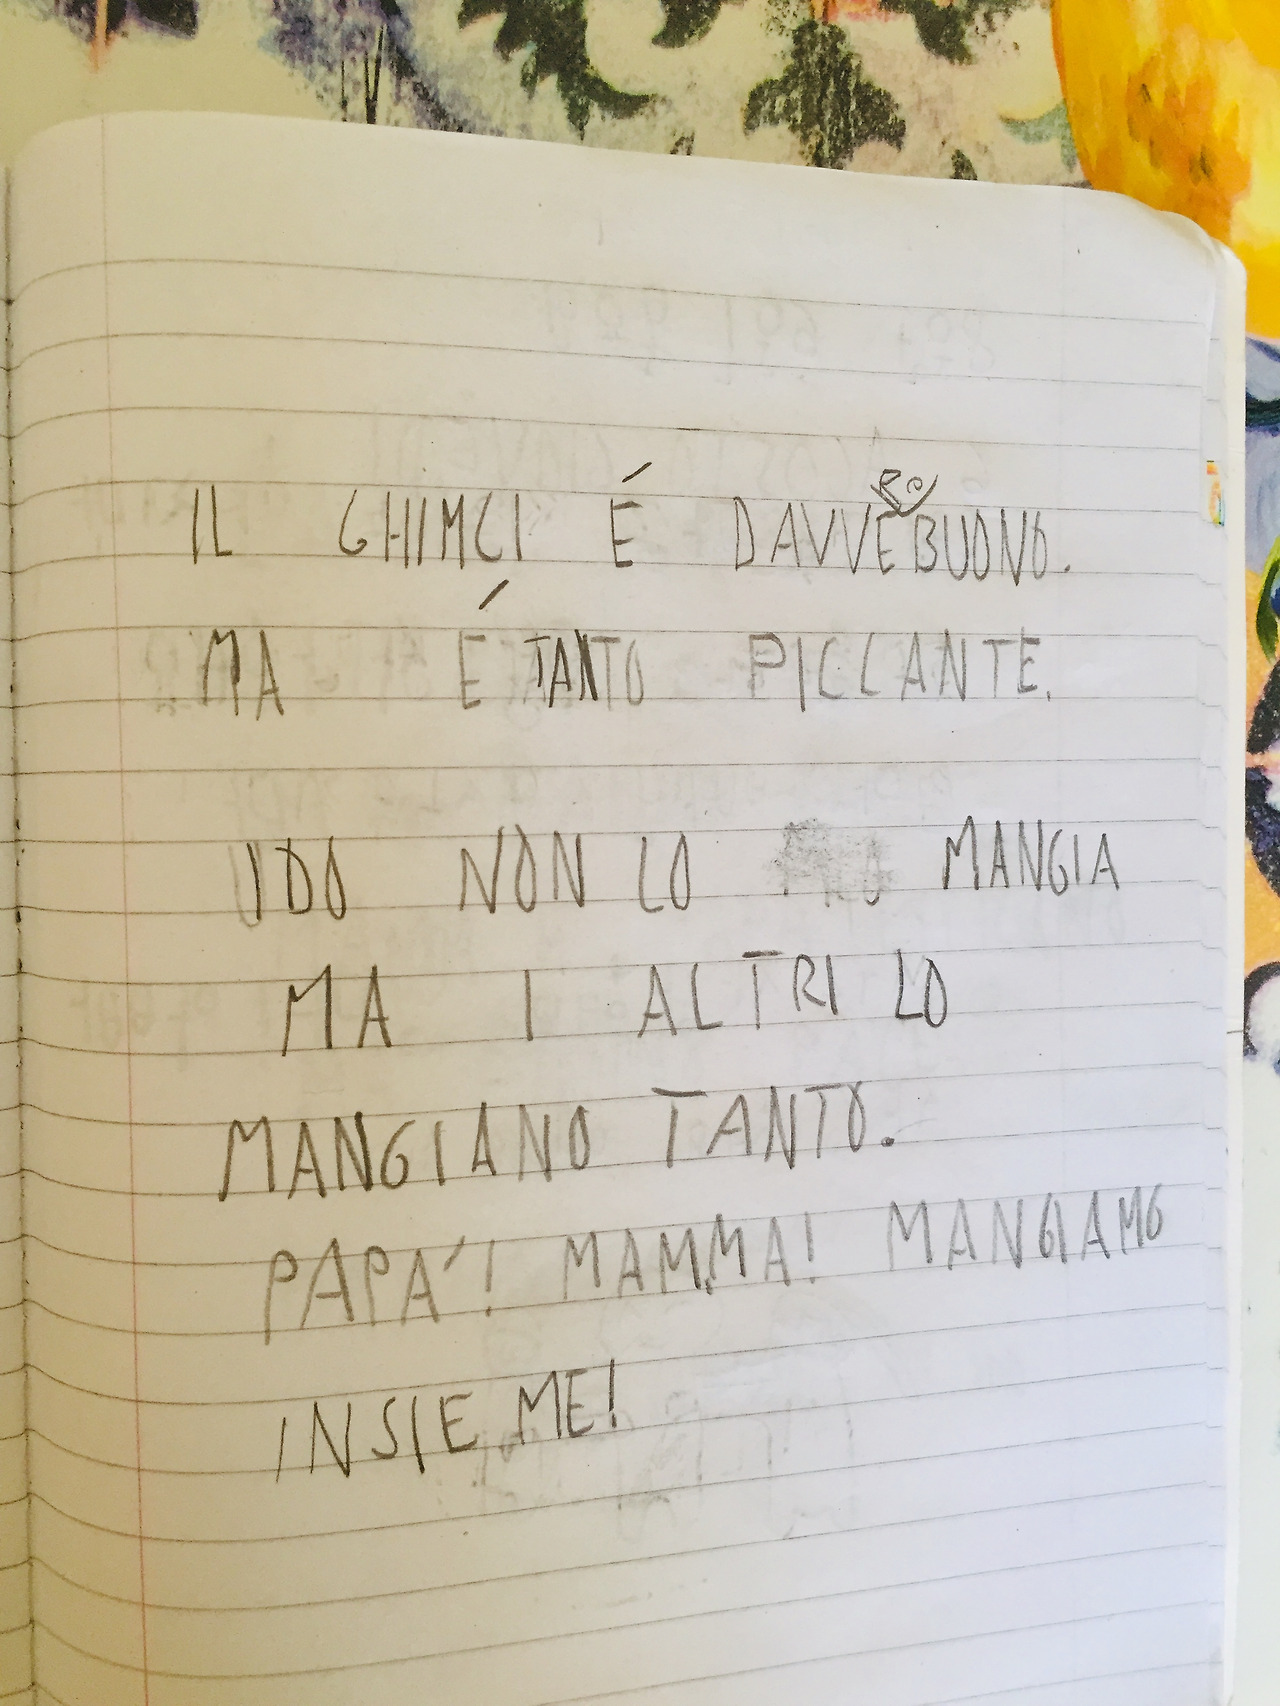 IL GHIMCI É DAVVEROBUONO.
MA É TANTO PICCANTE.
UDO NON LO MANGIA
MA I ALTRI LO
MANGIANO TANTO.
PAPA'! MAMMA! MANGIAMO
INSIEME!